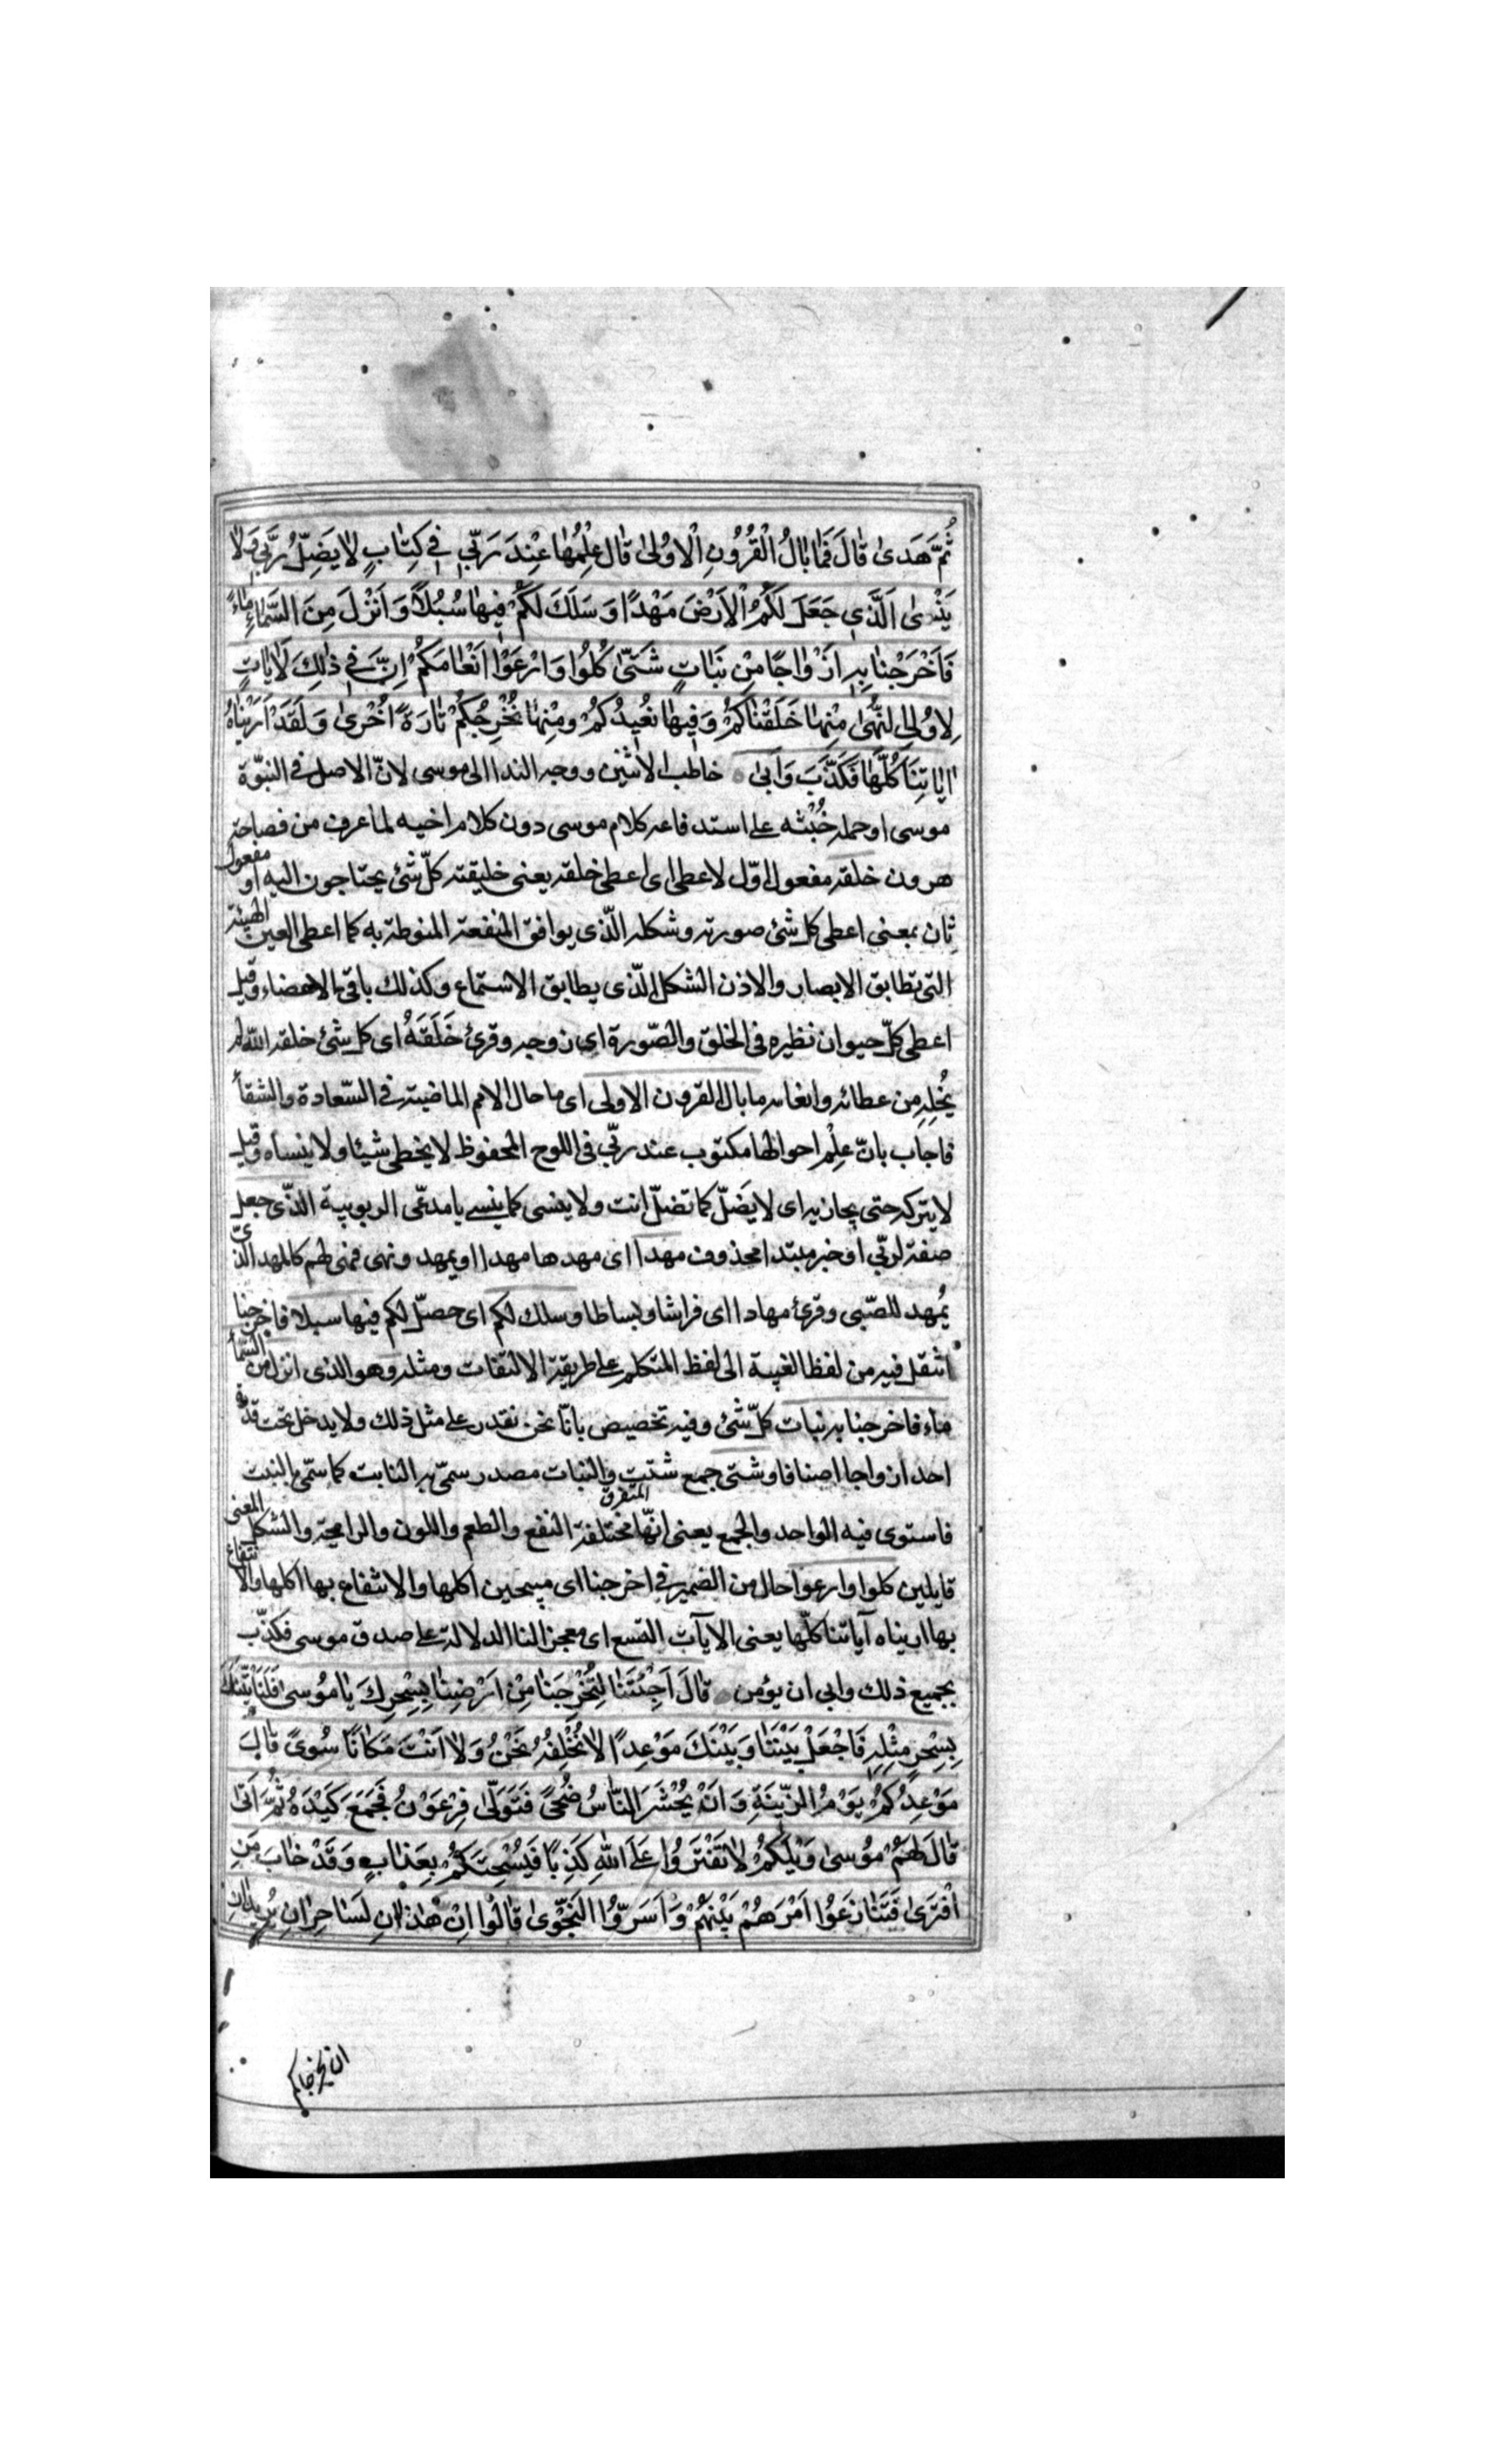 ثُمَّ هَدىٰ قٰالَ فَمٰا بٰالُ الْقُرُونِ الْاُولىٰ قٰالَ عِلْمُهٰا عِنْدَ رَبّي في كِتٰابٍ لٰا يَضِلُّ رَبّي وَلٰا
يَنْسىٰ اَلَّذي جَعَلَ لَكُمُ الْاَرْضَ مَهْدًا وَسَلَكَ لَكُمْ فيهٰا سُبُلًا وَاَنْزَلَ مِنَ السَّمٰاءِ مٰاءً
فَاَخْرَجْنٰا بِهِ اَزْوٰاجًا مِنْ نَبٰاتٍ شَتّىٰ كُلُوا وَارْعَوْا اَنْعٰامَكُمْ اِنَّ في ذٰلِكَ لَاٰيٰاتٍ
لِاُولِي النُّهىٰ مِنْهٰا خَلَقْنٰاكُمْ وَفيهٰا نُعيدُكُمْ وَمِنْهٰا نُخْرِجُكُمْ تٰارَةً اُخْرىٰ وَلَقَدْ اَرَيْنٰاهُ
اٰيٰاتِنَا كُلَّهٰا فَكَذَّبَ وَاَبىٰ خاطب الاثنين ووجه الندا الى موسى لانّ الاصل في النبوّة
موسى او حمله خُبْثه على استدفاعه كلام موسى دون كلام اخيه لما عرف من فصاحة
هرون خلقه مفعول اوّل لاعطى اى اعطى خلقه يعنى خليقته كلّ شئ يحتاجون اليه او مفعول
ثان بمعنى اعطى كل شئ صورته وشكله الّذى يوافق المنفعة المنوطة به كما اعطى العين الهيئة
التى تطابق الابصار والاذن الشكل الّذى يطابق الاستماع وكذلك باقى الاعضاء وقيل
اعطى كلّ حيوان نظيره فى الخلق والصّورة اى زوجه وقرئ خَلَقَهُ اى كل شئ خلقه اللّه لم
يُخْلِهِ من عطائه وانعامه ما بال القرون الاولى اى ما حال الامم الماضية في السّعادة والشقأ
فاجاب بانّ عِلْم احوالها مكتوب عند ربّي فى اللوح المحفوظ لا يخطى شيئا ولا ينساه وقيل
لا يتركه حتى يجازيه اى لا يَضلّ كما تضلّ انت ولا ينسى كما ينسى يا مدعّى الربوبية الذّى جعل
صفة لربّي او خبر مبتدا محذوف مهدا اى مهدها مهدا او يمهد ونهى فهى لهم كالمهد الذى
يُمهد للصّبى وقرئ مهادا اى فراشا وبساطا وسلك لكم اى حصّل لكم فيها سبلا فاخرجنا
انتقل فيه من لفظ الغيبة الى لفظ المتكلم على طريقة الالتفات ومثله وهو الذى انزل من السّمأ
ماء فاخرجنا به نبات كلّ شئ وفيه تخصيص بانّا نحن نقدر على مثل ذلك ولا يدخل تحت قدرة
احد ازواجا اصنافا وشتى جمع شتيت والنبات مصدر سمّى به النابت كما سمّى بالنبت
المتفرق
فاستوى فيه الواحد والجمع يعنى انّها مختلفة النفع والطعم واللون والرايحة والشكل المعنى
قايلين كلوا وارعوا حال من الضمير في اخرجنا اى مبيحين اكلها والانتفاع بها اكلها والانتفاع
بها اريناه آياتنا كلّها يعنى الايآت التسع اى معجزاتنا الدلالة على صدق موسى فكذّب
بجميع ذلك وابى ان يؤمن قٰالَ اَجِئْتَنٰا لِتُخْرِجَنٰا مِنْ اَرْضِنٰا بِسِحْرِكَ يٰا مُوسىٰ فَلَنَأْتِيَنَّكَ
بِسِحْرٍ مِثْلِهِ فَاجْعَلْ بَيْنَنٰا وَبَيْنَكَ مَوْعِدًا لٰا نُخْلِفُهُ نَحْنُ وَلٰا اَنْتَ مَكٰانًا سُوىً قٰالَ
مَوْعِدُكُمْ يَوْمُ الزّينَةِ وَاَنْ يُحْشَرَ النّٰاسُ ضُحىً فَتَوَلّىٰ فِرْعَوْنُ فَجَمَعَ كَيْدَهُ ثُمَّ اَتىٰ
قٰالَ لَهُمْ مُوسىٰ وَيْلَكُمْ لٰا تَفْتَرُوا عَلَى اللّٰهِ كَذِبًا فَيُسْحِتَكُمْ بِعَذٰابٍ وَقَدْ خٰابَ مَنِ
افْتَرىٰ فَتَنٰازَعُوا اَمْرَهُمْ بَيْنَهُمْ وَاَسَرُّوا النَّجْوىٰ قٰالُوا اِنْ هٰذٰانِ لَسٰاحِرٰانِ يُريدٰانِ
ان يخرجاكم